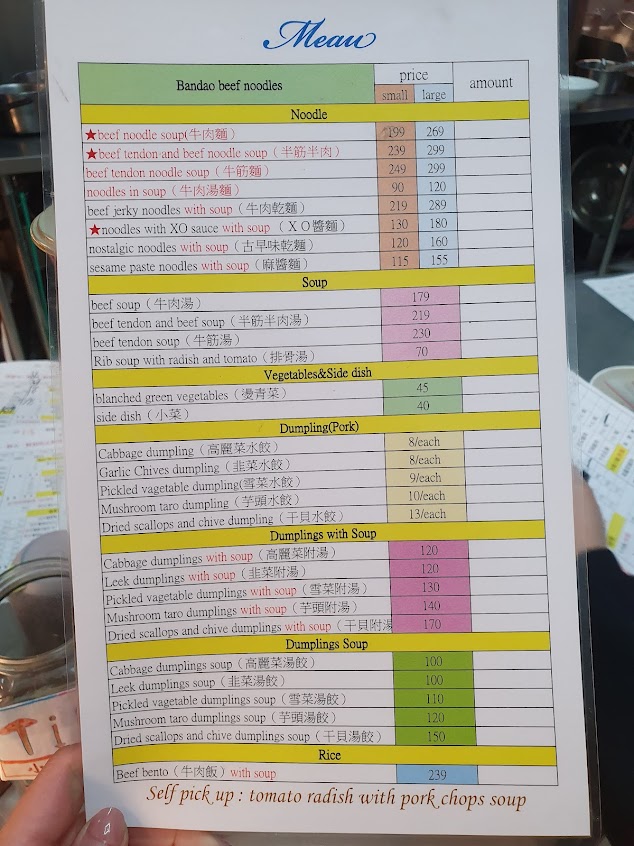 Meau
Bandao beef noodles price small large amount
Noodle
★beef noodle soup(牛肉麵) 199 269
★beef tendon and beef noodle soup (半筋半肉) 239 299
beef tendon noodle soup (牛筋麵) 249 299
noodles in soup (牛肉湯麵) 90 120
beef jerky noodles with soup (牛肉乾麵) 219 289
★noodles with XO sauce with soup (XO醬麵) 130 180
nostalgic noodles with soup (古早味乾麵) 120 160
sesame paste noodles with soup (麻醬麵) 115 155
Soup
beef soup (牛肉湯) 179
beef tendon and beef soup (半筋半肉湯) 219
beef tendon soup (牛筋湯) 230
Rib soup with radish and tomato (排骨湯) 70
Vegetables&Side dish
blanched green vegetables (燙青菜) 45
side dish (小菜) 40
Dumpling(Pork)
Cabbage dumpling (高麗菜水餃) 8/each
Garlic Chives dumpling (韭菜水餃) 8/each
Pickled vagetable dumpling(雪菜水餃) 9/each
Mushroom taro dumpling (芋頭水餃) 10/each
Dried scallops and chive dumpling (干貝水餃) 13/each
Dumplings with Soup
Cabbage dumplings with soup (高麗菜附湯) 120
Leek dumplings with soup (韭菜附湯) 120
Pickled vagetable dumplings with soup (雪菜附湯) 130
Mushroom taro dumplings with soup (芋頭附湯) 140
Dried scallops and chive dumplings with soup (干貝附湯 170
Dumplings Soup
Cabbage dumplings soup (高麗菜湯餃) 100
Leek dumplings soup (韭菜湯餃) 100
Pickled vagetable dumplings soup (雪菜湯餃) 110
Mushroom taro dumplings soup (芋頭湯餃) 120
Dried scallops and chive dumplings soup (干貝湯餃) 150
Rice
Beef bento (牛肉飯) with soup 239
Self pick up : tomato radish with pork chops soup